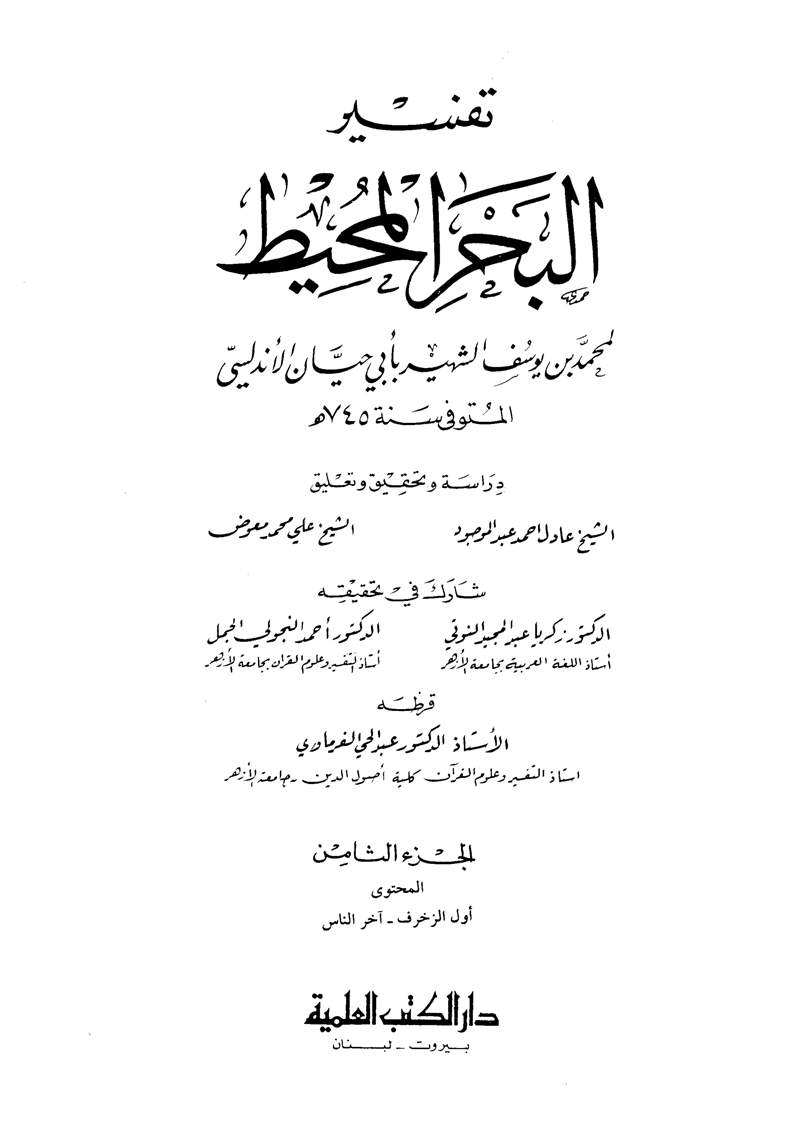 تفسير
البحر المحيط
لمحمد بن يوسف الشهير بأبي حيان الأندلسي
المتوفى سنة ٧٤٥ه
دراسة وتحقيق وتعليق
الشيخ عادل احمد عبد الموجود الشيخ علي محمد معوض
شارك في تحقيقه
الدكتور زكريا عبد المجيد النوتي الدكتور أحمد النجولي الجمل
أستاذ اللغة العربية بجامعة الأزهر أستاذ التفسير وعلوم القرآن بجامعة الأزهر
قرظه
الأستاذ الدكتور عبد الحي الفرماوي
استاذ التفسير وعلوم القرآن كلية أصول الدين جامعة الأزهر
الجزء الثامن
المحتوى
أول الزخرف - آخر الناس
دار الكتب العلمية
بيروت - لبنان